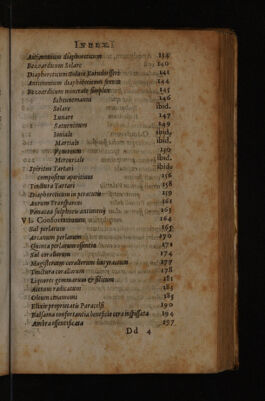 INDEX.
Antimonium diaphoreticum 134
Bezoardicum Solare 140
Diaphoreticum Solare 141
Antimonium diaphoreticum 144
Bezoardicum minerale simplex 145
146
Solare ibid.
Lunare 147
Saturninum 149
Ioniale ibid.
Martiale ibid.
150
Mercuriale ibid.
Spiritus Tartari
compositus aperitivus 156
Tinctura Tartari 158
Diaphoreticum in peracutis 159
Aurum 161
Panacaea sulphuris antimonij 163
VI. Confortantium 164
Sal perlarum 165
Arcanum perlarum 170
Quinta perlarum essentia 171
Sal corallorum 174
Magisterium corallorum 177
Tinctura corallorum 178
Liquores gemmarum & silicum 181
Acetum radicatum 183
Oleum cinamomi 185
Elixir proprietatis Paracelsi 190
Balsama confortantia beneficio cera inspissata 194
Ambra essentificata 197
Dd 4